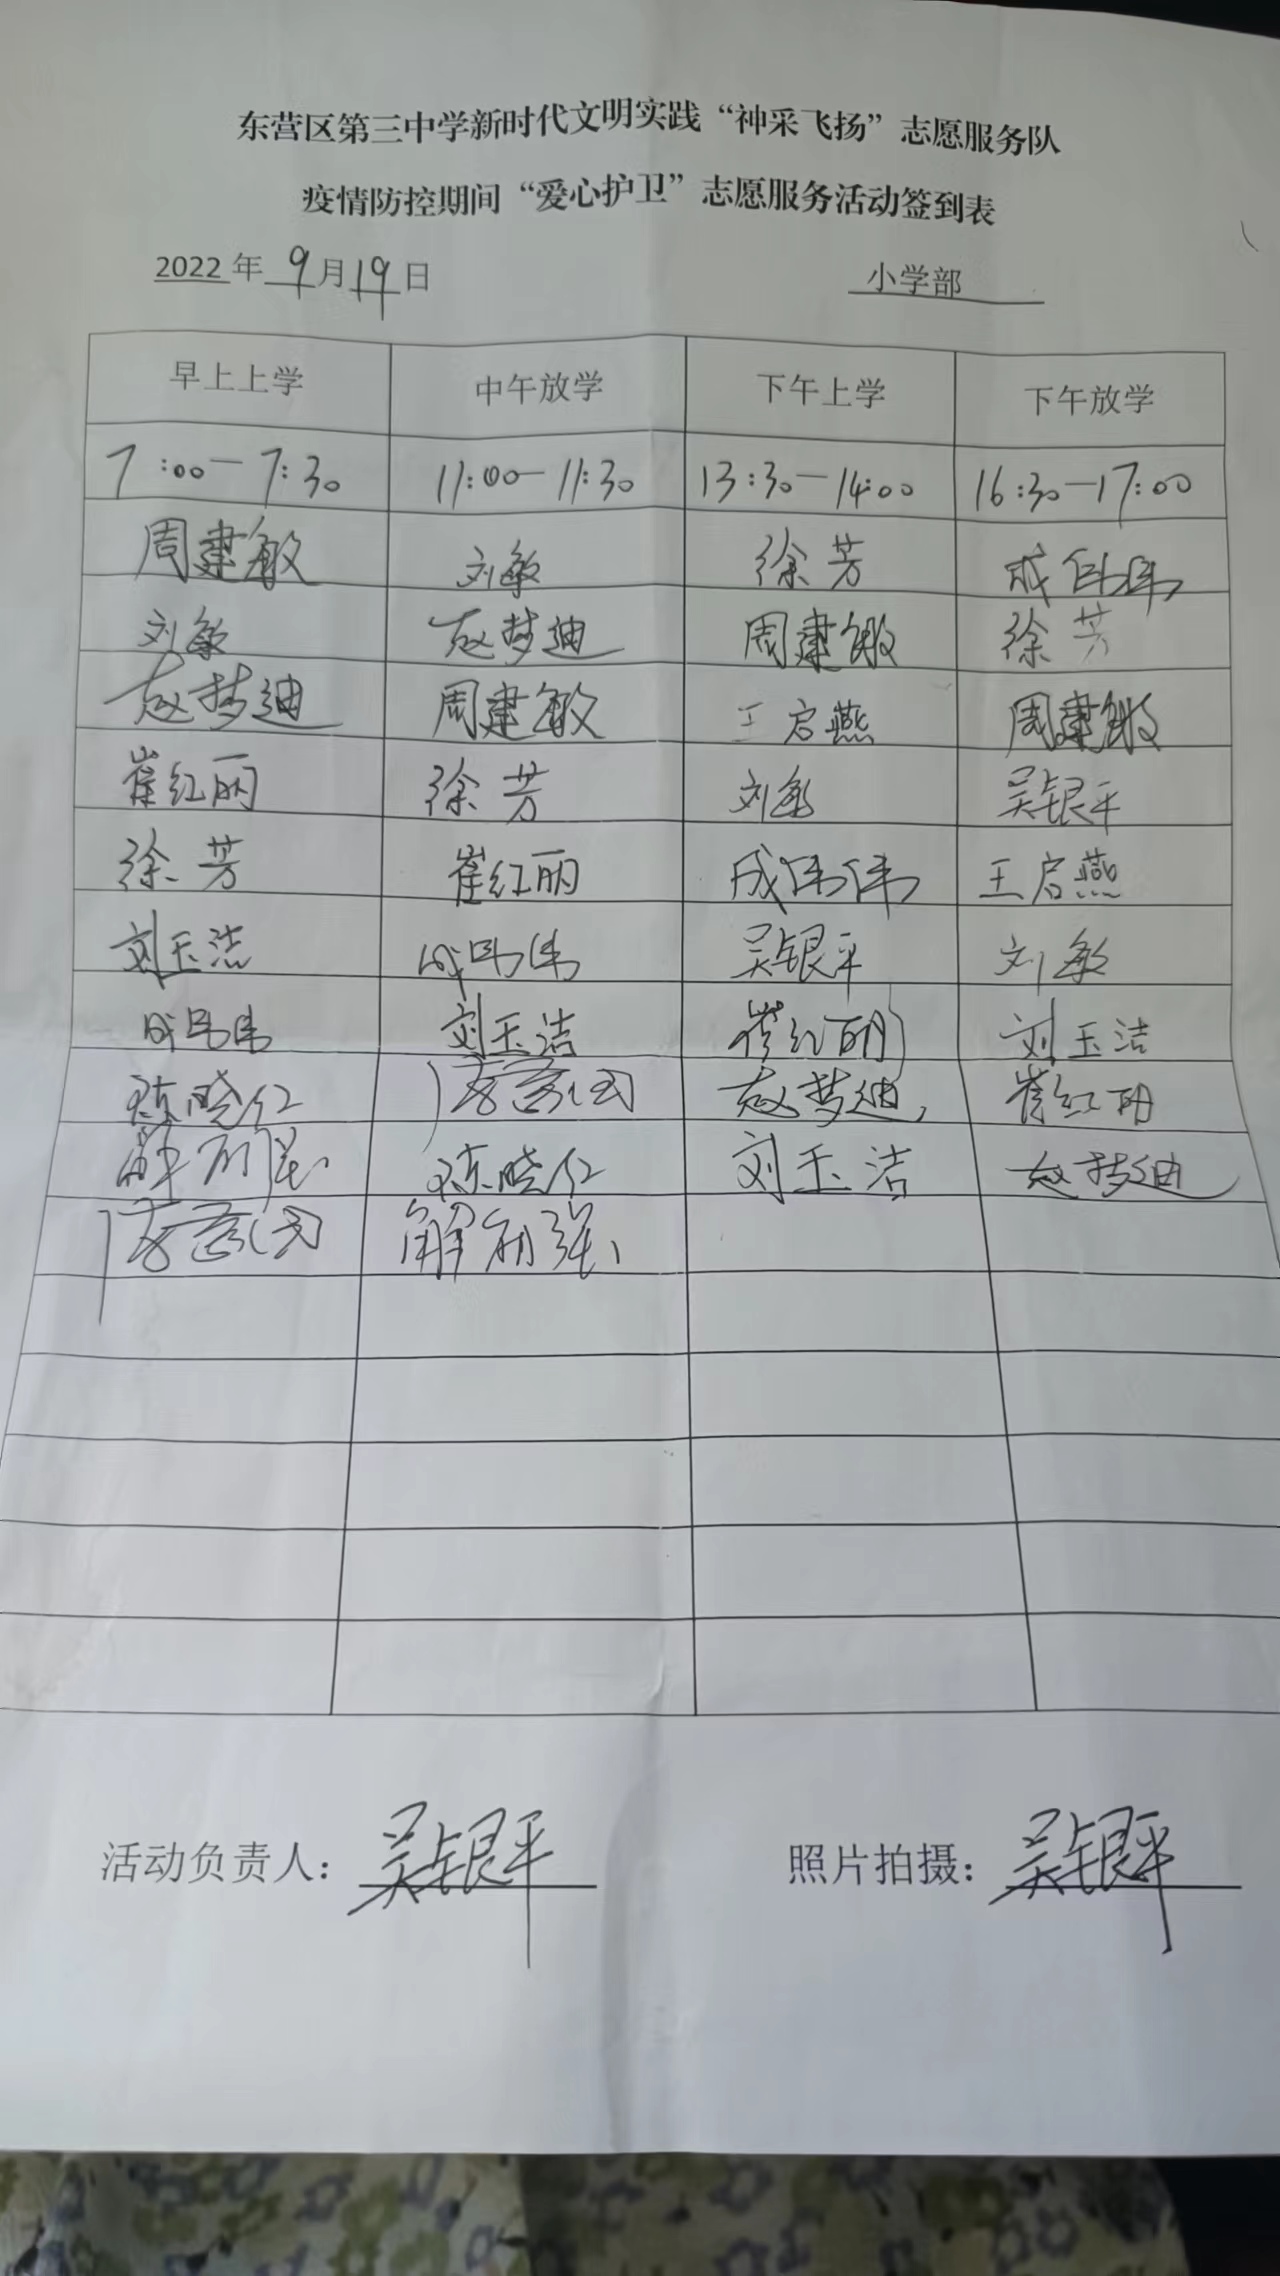 东营区第三中学新时代文明实践“神采飞扬”志愿服务队
疫情防控期间“爱心护卫”志愿服务活动签到表
2022 年 9 月 19 日 小学部
早上上学 中午放学 下午上学 下午放学
7:00-7:30 11:00-11:30 13:30-14:00 16:30-17:00
周建敏 刘敏 徐芳 成伟伟
刘敏 赵梦迪 周建敏 徐芳
赵梦迪 周建敏 王启燕 周建敏
崔红丽 徐芳 刘敏 吴银平
徐芳 崔红丽 成伟伟 王启燕
刘玉洁 成伟伟 吴银平 刘敏
成伟伟 刘玉洁 崔红丽 刘玉洁
陈晓仁 赵梦迪, 崔红丽
陈晓仁 刘玉洁 赵梦迪
活动负责人：吴银平 照片拍摄：吴银平